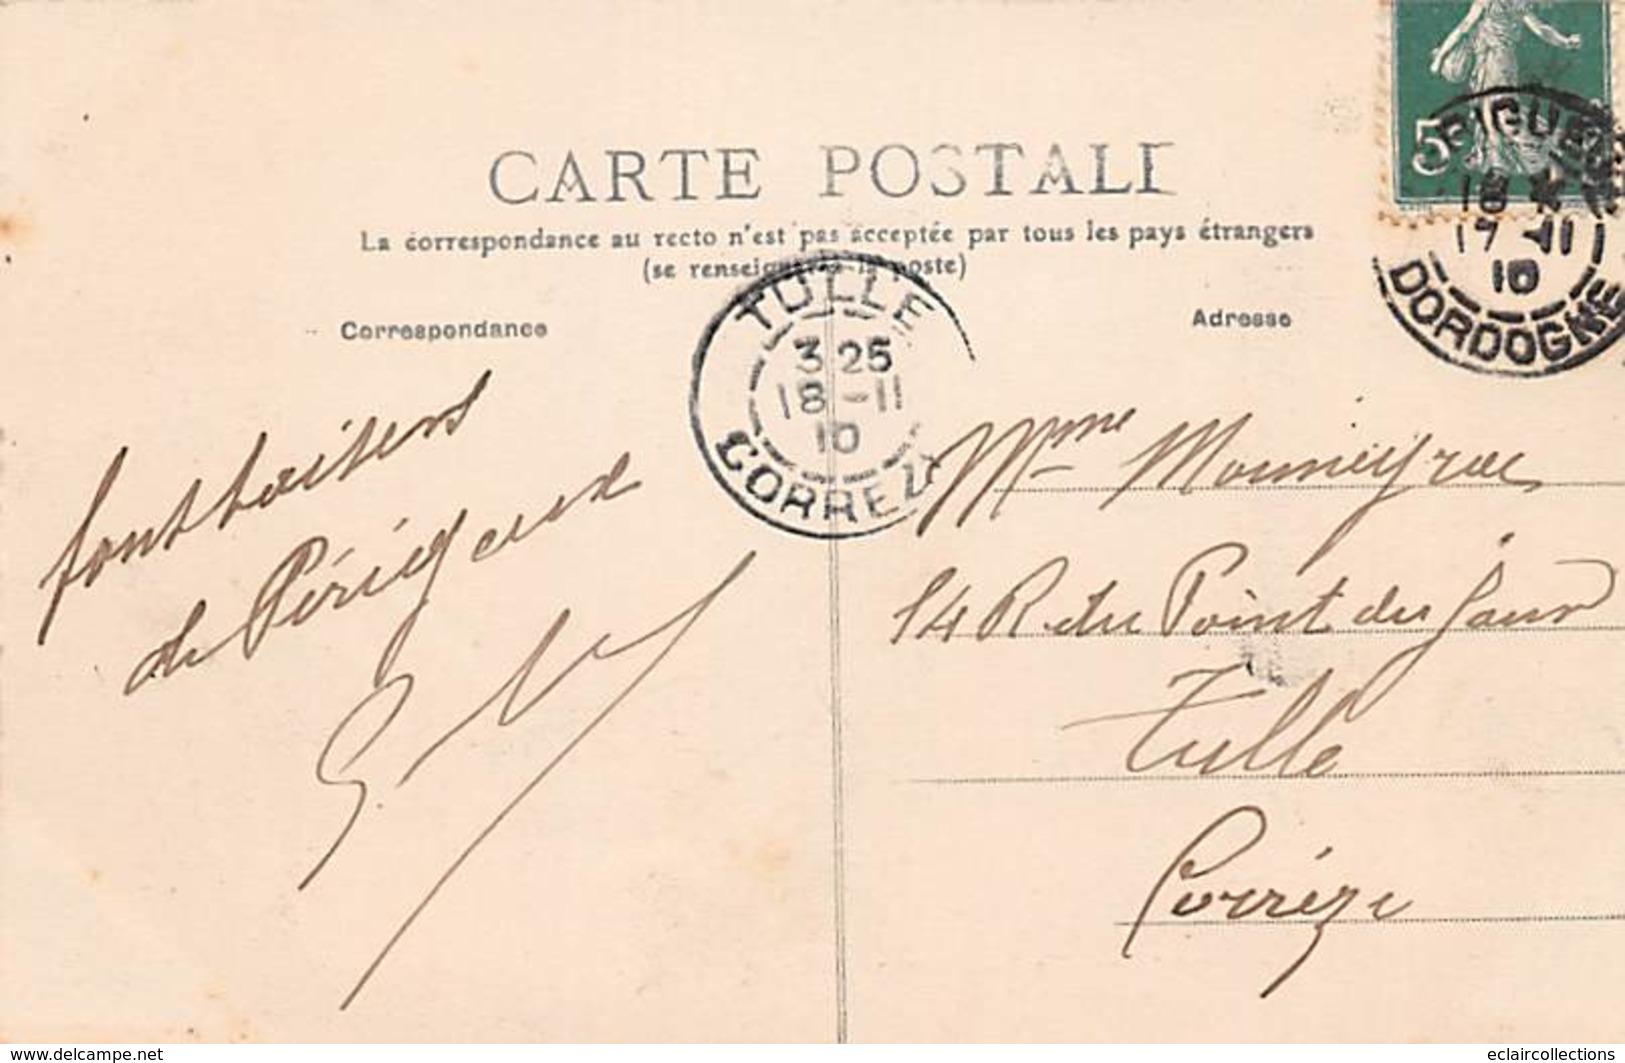 CARTE POSTALE
La correspondance au recto n'est pas acceptée par tous les pays étrangers
(se renseigner à la poste)
Correspondance
Adresse
5
DORDOGNE
17-11
10
TULLE
3 25
18-11
10
CORREZE
baisers
de Périgueux
Mme
14 R du Point du Jour
Tulle
Corrèze
www.delcampe.net
eclaircollections